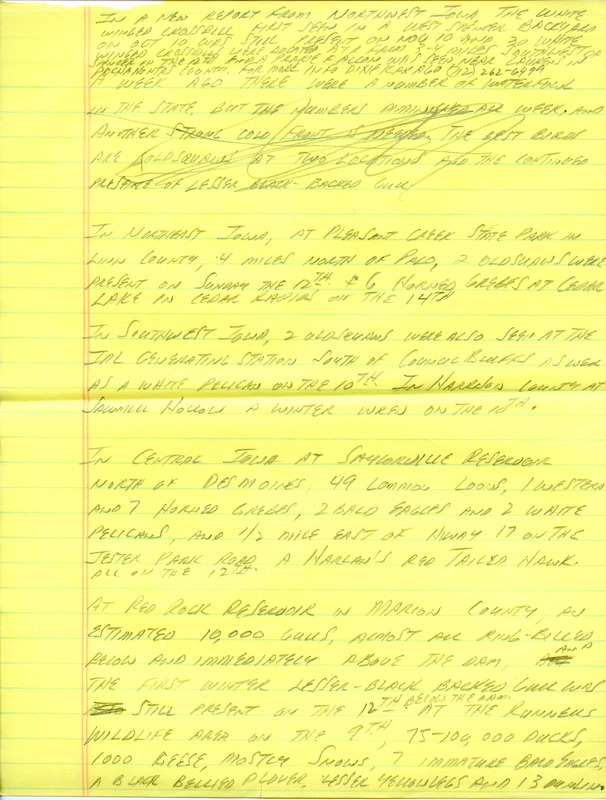 IN A NEW REPORT FROM NORTHWEST IOWA THE WHITE
WINGED CROSSBILL FIRST SEEN IN A WEST SPENCER BACKYARD
ON OCT 10 WAS STILL PRESENT ON NOV 10 AND 30 WHITE
WINGED CROSSBILLS WERE LOCATED AT A FARM 3-4 MILES SOUTHWEST OF
SPENCER ON THE 12TH AND A PRAIRIE FALCON WAS SEEN NEAR LAURENS IN
POCAHONTAS COUNTY. FOR MORE INFO DIAL (712) 262-
A WEEK AGO THERE WERE A NUMBER OF WATERFOWL
IN THE STATE, BUT THE NUMBERS DIMINISHED ALL WEEK. AND
ANOTHER STRONG COLD FRONT IS NEEDED. THE BEST BIRDS
ARE OLDSQUAWS AT TWO LOCATIONS AND THE CONTINUED
PRESENCE OF LESSER BLACK-BACKED GULL
IN NORTHEAST IOWA, AT PLEASANT CREEK STATE PARK IN
LINN COUNTY, 4 MILES NORTH OF PALO, 2 OLDSQUAWS WERE
PRESENT ON SUNDAY THE 12TH. & 6 HORNED GREBES AT CEDAR
LAKE IN CEDAR RAPIDS ON THE 14TH
IN SOUTHWEST IOWA, 2 OLDSQUAWS WERE ALSO SEEN AT THE
IPL GENERATING STATION SOUTH OF COUNCIL BLUFFS AS WELL
AS A WHITE PELICAN ON THE 10TH. IN HARRISON COUNTY AT
SAWMILL HOLLOW A WINTER WREN ON THE 10TH.
IN CENTRAL IOWA AT SAYLORVILLE RESERVOIR
NORTH OF DES MOINES, 49 COMMON LOONS, 1 WESTERN
AND 7 HORNED GREBES, 2 BALD EAGLES AND 2 WHITE
PELICANS, AND 1/2 MILE EAST OF HWAY 17 ON THE
JESTER PARK ROAD A HARLAN'S RED TAILED HAWK.
ALL ON THE 12TH.
AT RED ROCK RESERVOIR IN MARION COUNTY, AN
ESTIMATED 10,000 GULLS, ALMOST ALL RING-BILLED,
BELOW AND IMMEDIATELY ABOVE THE DAM, AND
THE FIRST WINTER LESSER-BLACK BACKED GULL WAS
STILL PRESENT ON THE 12TH BELOW THE DAM. AT THE RUNNELLS
WILDLIFE AREA ON THE 9TH, 75-100,000 DUCKS,
1000 GEESE, MOSTLY SNOWS, 7 IMMATURE BALD EAGLES,
A BLACK BELLIED PLOVER, LESSER YELLOWLEGS AND 13 DUNLIN.